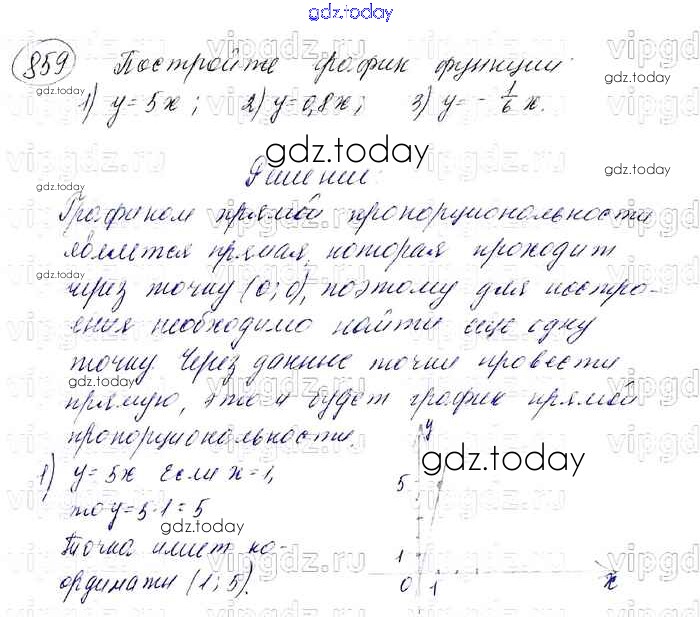 gdz.today
859 Постройте график функции:
1) y = 5x; 2) y = 0,8x; 3) y = - 1/6 x.
gdz.today
Решение:
gdz.today
gdz.today
Графиком прямой пропорциональности
является прямая, которая проходит
через точку (0; 0), поэтому для постро-
ения необходимо найти еще одну
точку. Через данные точки провести
gdz.today
gdz.today
прямую, это и будет график прямой
пропорциональности.
y
gdz.today
1) y = 5x Если x = 1,
5
то y = 5·1 = 5
gdz.today
Точка имеет ко-
1
ординаты (1; 5).
0 1 x
gdz.today